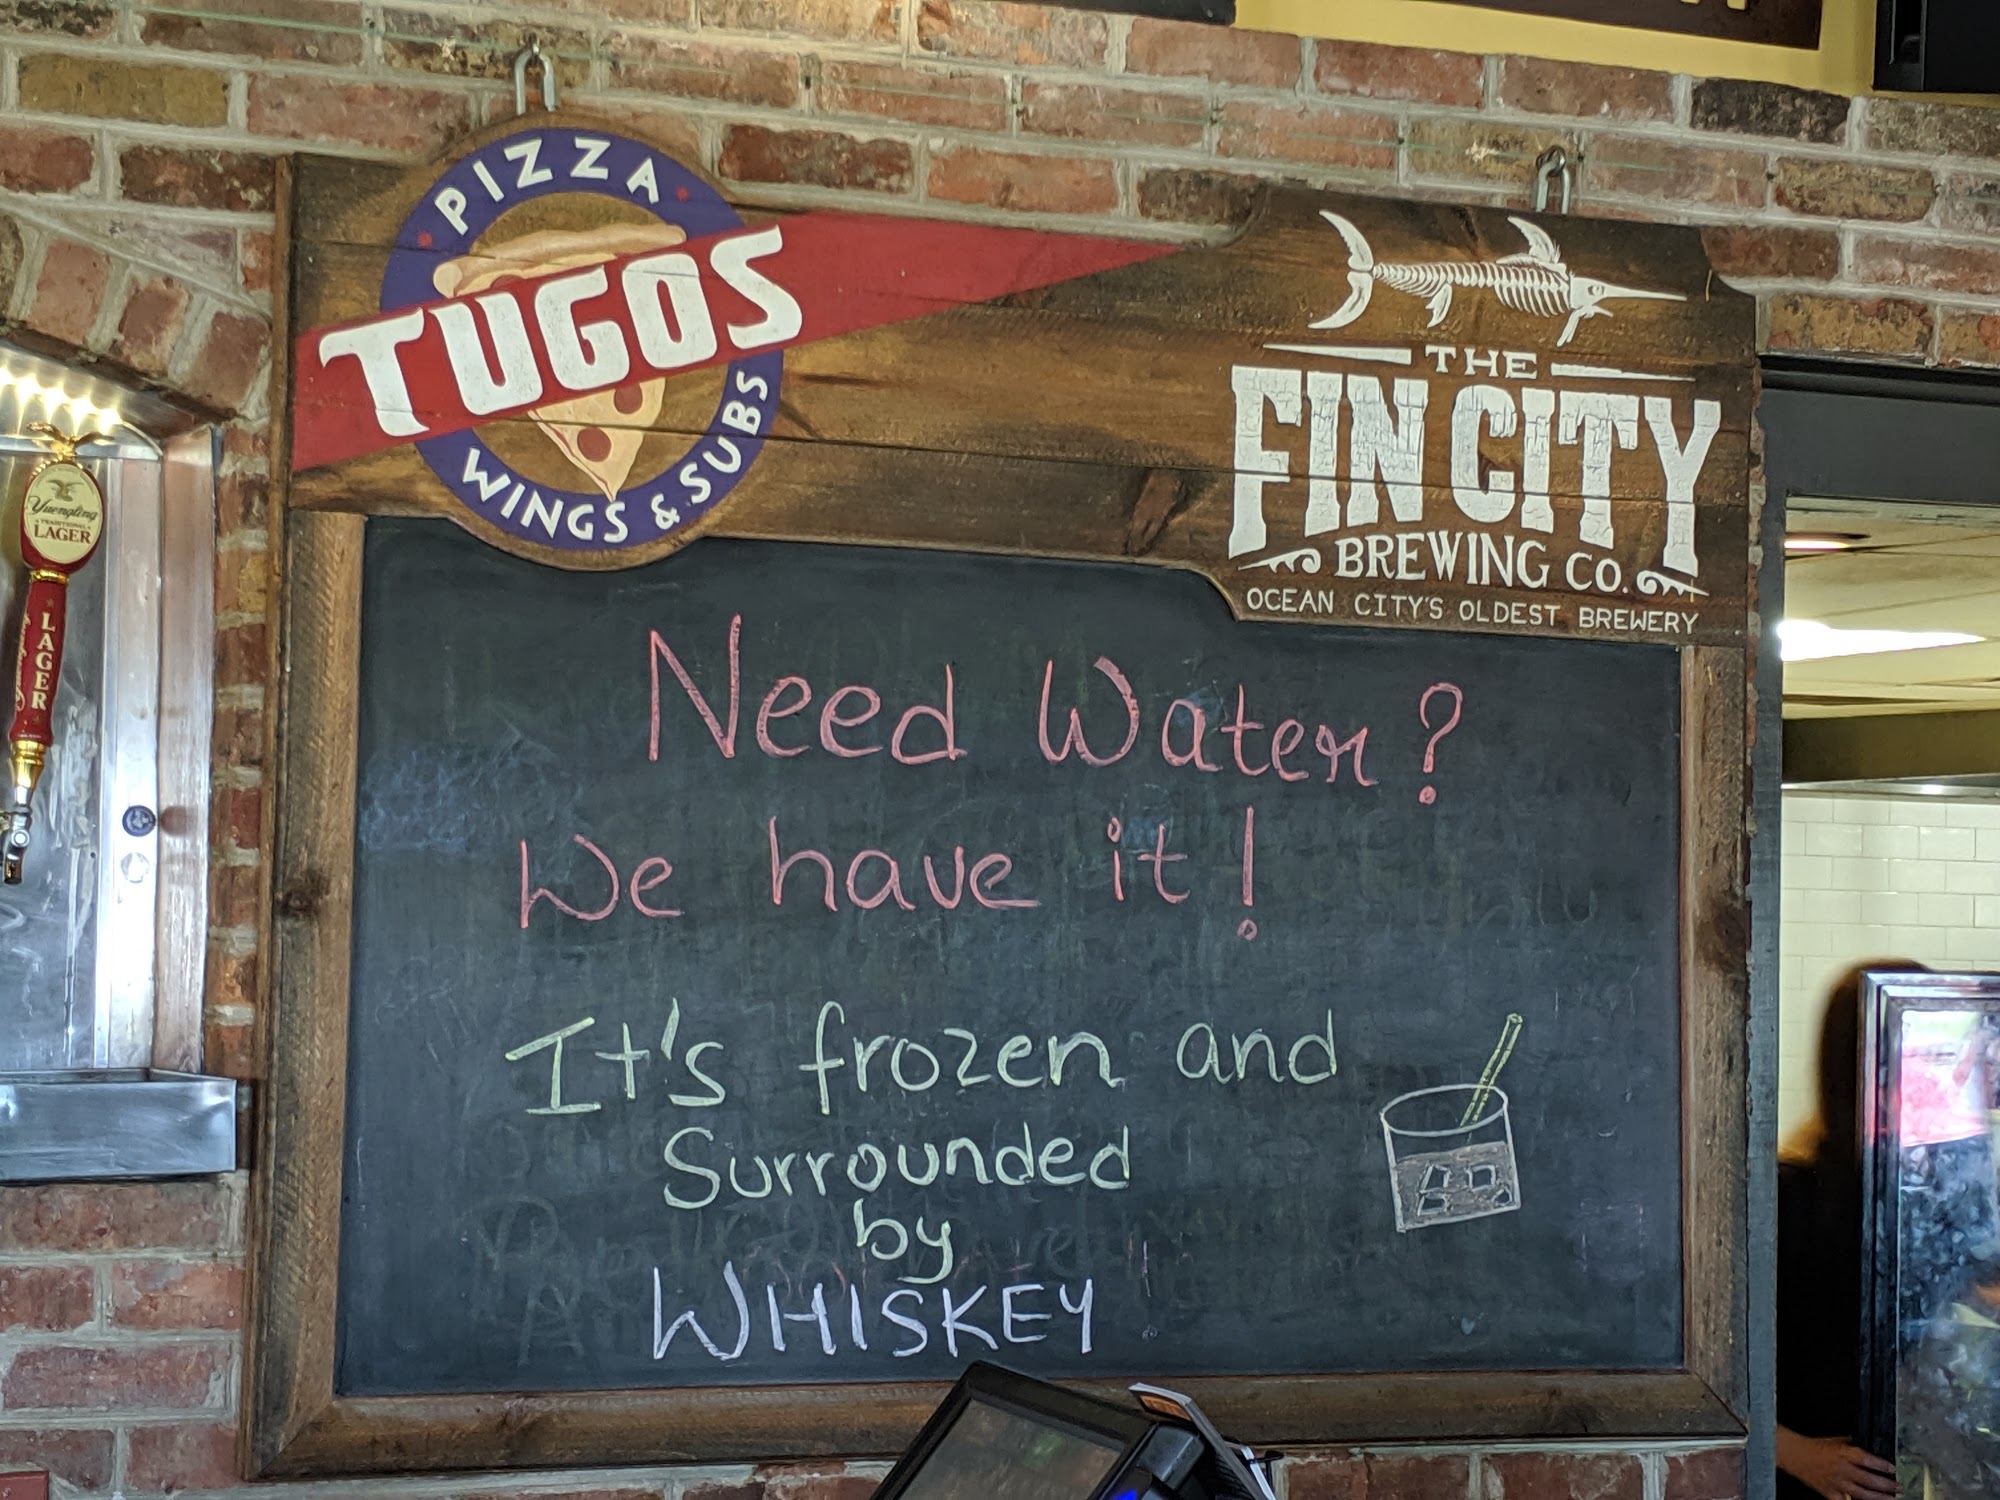 PIZZA
TUGOS
WINGS & SUBS
THE
FIN CITY
BREWING CO.
OCEAN CITY'S OLDEST BREWERY
Yuengling
TRADITIONAL
LAGER
LAGER
Need Water?
We have it!
It's frozen and
Surrounded
by
WHISKEY